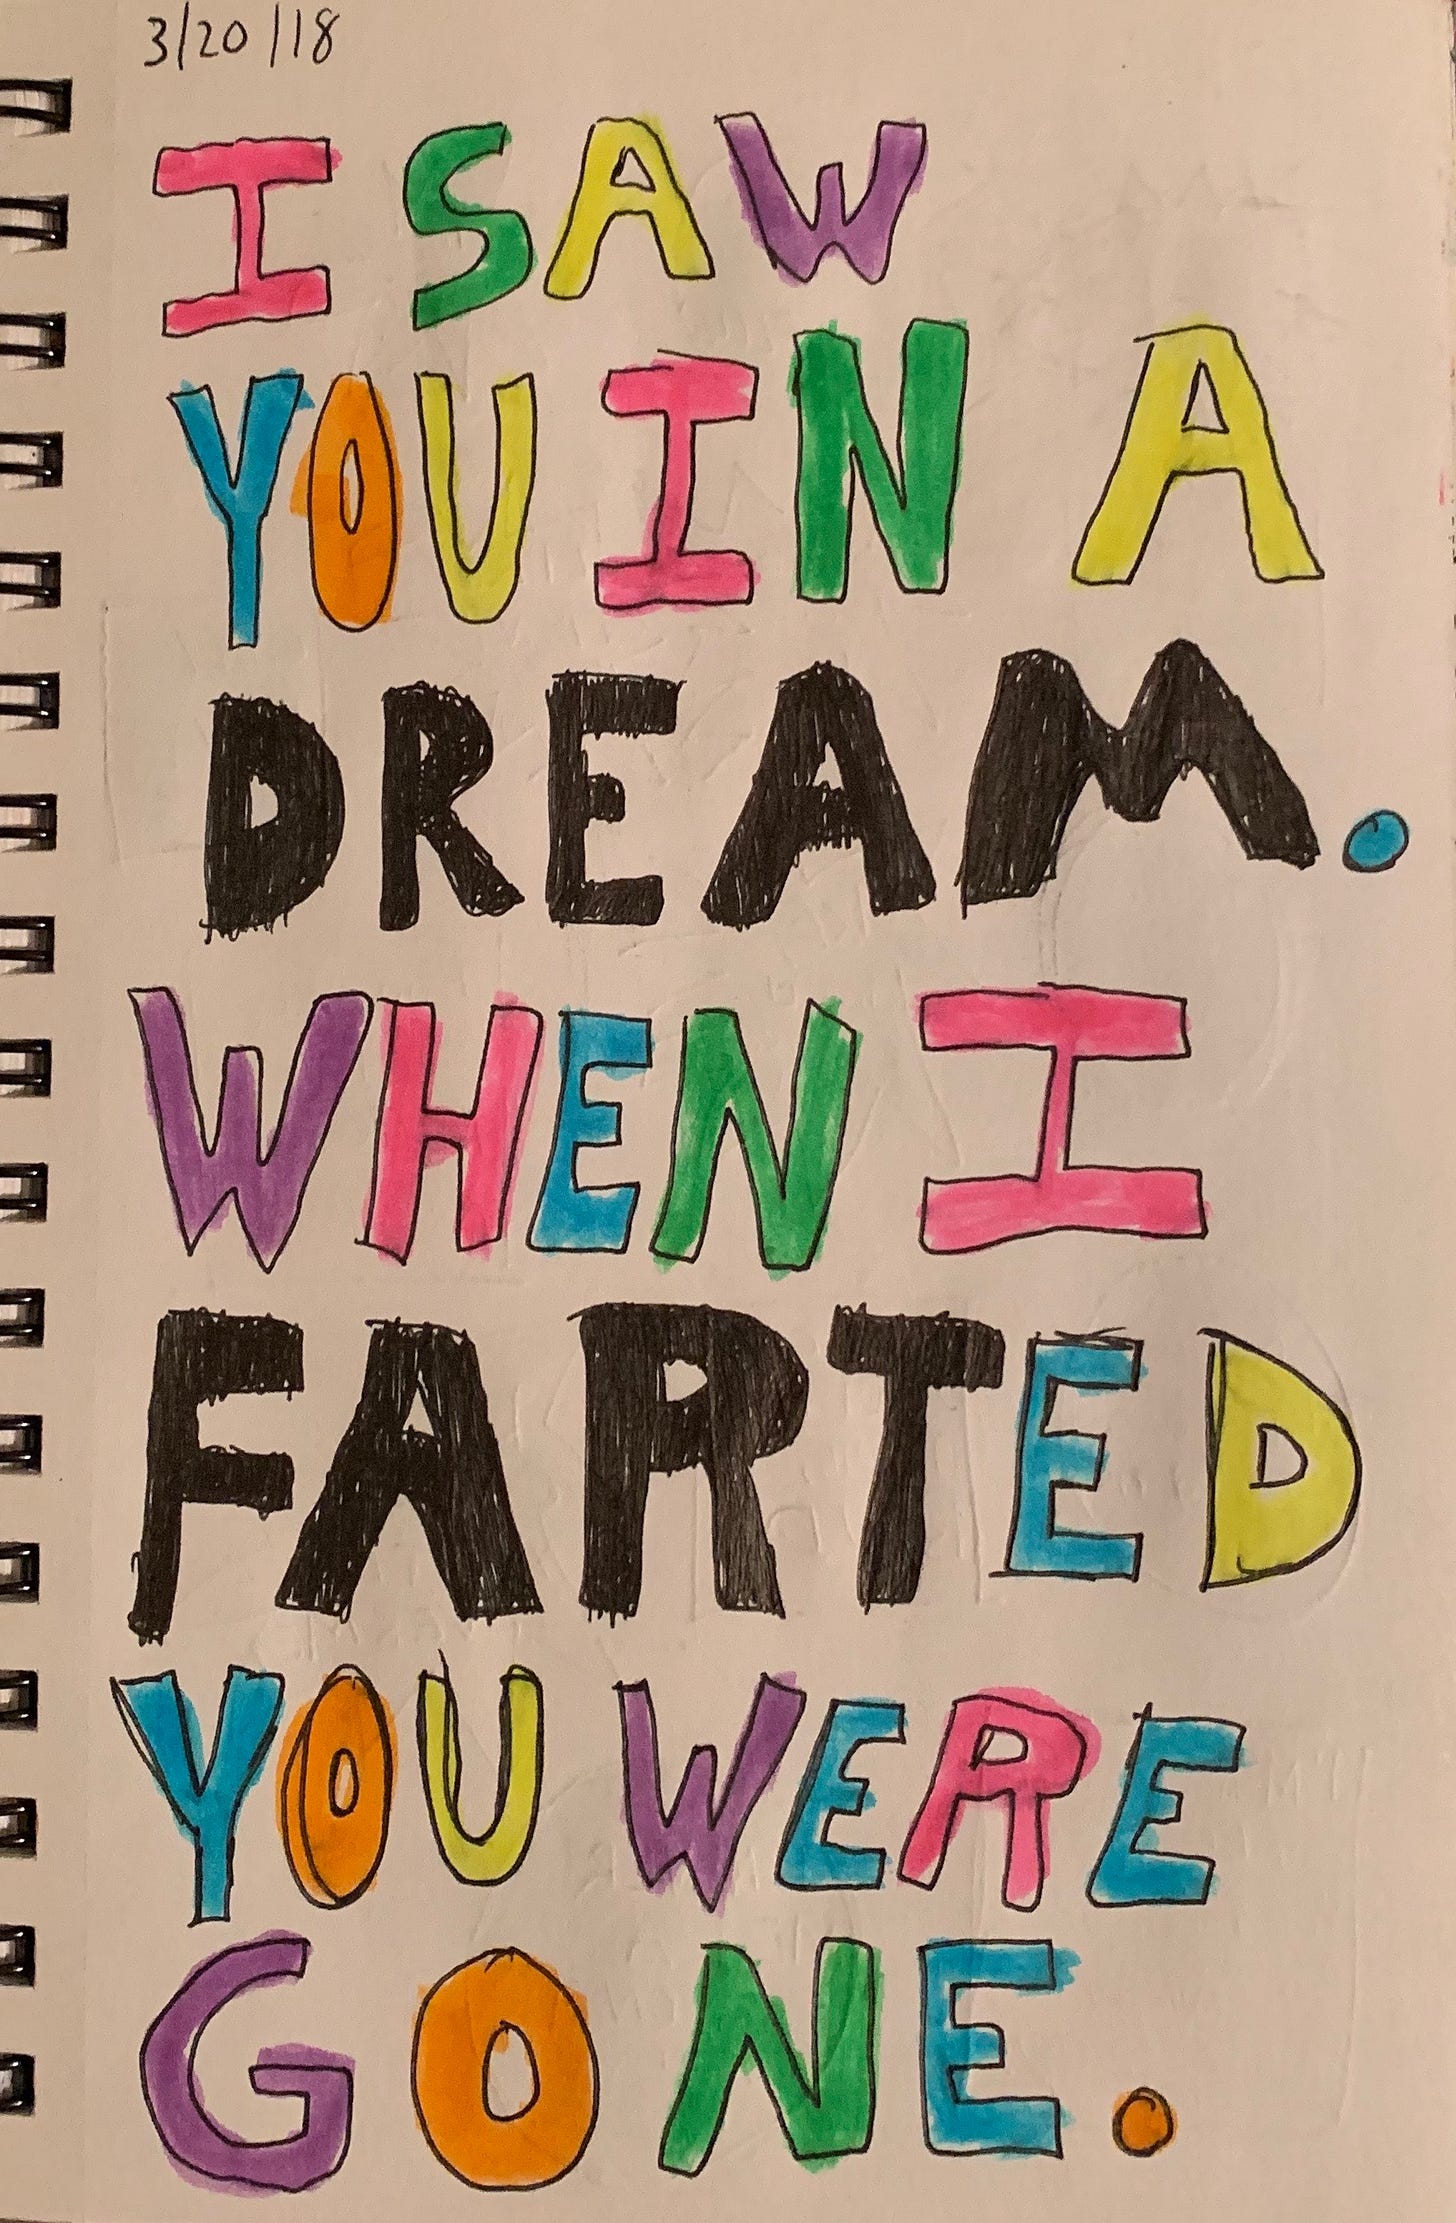 3/20/18
I SAW
YOU IN A
DREAM.
WHEN I
FARTED
YOU WERE
GONE.